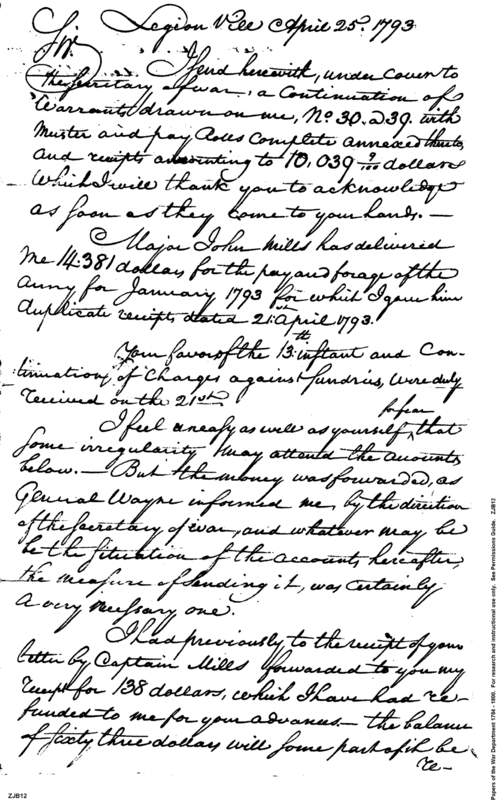 Legion Ville April 25th. 1793
Sir.
I send herewith, under cover to
the Secretary of war, a Continuation of
Warrants drawn on me, No. 30. a 39. with
Muster and pay Rolls complete annexed thereto,
and receipts amounting to 10,039 9/100 dollars
which I will thank you to acknowledge
as soon as they come to your hands. —
Major John Mills has delivered
me 14.381 dollars for the pay and forage of the
army for January 1793 for which I gave him
duplicate receipts dated 21st April 1793.
Your favor of the 13th instant and Con-
tinuation, of Charges against sundries, were duly
received on the 21st.
I feel uneasy as well as yourself, for fear that
some irregularity may attend the accounts
below. — But the money was forwarded, as
General Wayne informed me, by the direction
of the Secretary of war, and whatever may be
be the situation of the accounts hereafter,
the measure of sending it, was certainly
a very necessary one.
I had previously to the receipt of your
letter by Captain Mills forwarded to you my
receipt for 138 dollars, which I have had re-
funded to me for your advances. — the balance
of sixty three dollars will some part of it be
re-
ZJB12
Papers of the War Department 1784 - 1800. For research and instructional use only. See Permissions Guide. ZJB12